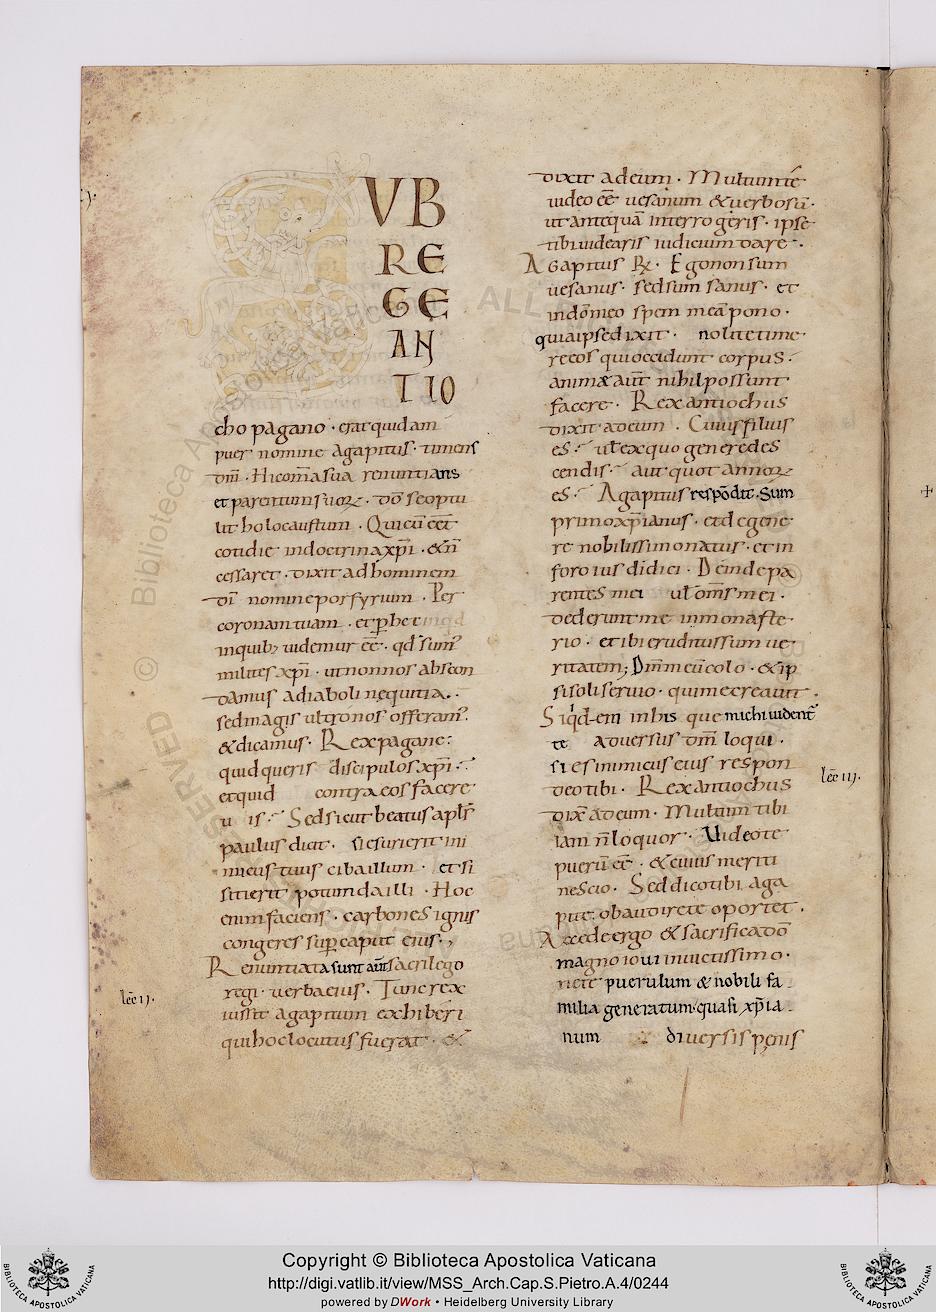 SUB
REGE
GE
AN
TIO
cho pagano · erat quidam
puer nomine agapitus · timens
dm̄ · Hic om̄a sua renuntians
et parentum suoꝝ · dō se optu
lit holocaustum · Qui cū eēt
cotidie in doctrina xp̄i · & n̄
cessaret · dixit ad hominem
dī nomine porfyrium · Per
coronam tuam · et ꝑ hec
inquibꝫ videmur eē · qd̄ sum᷒
milites xp̄i · ut non nos abscon
damus a diaboli nequitia ·
sed magis ultro nos offeram᷒ ·
& dicamus · Rex pagane :
quid queris discipulos xp̄i ·
et quid contra eos facere
u is · Sed sicut beatus apl̄s
paulus dicit · si esurierit ini
micus tuus ciba illum · et si
sitierit potum da illi · Hoc
enim faciens · carbones ignis
congeres sup̄ caput eius ·,
Renuntiata sunt aūt sacrilego
regi · verba eius · Tunc rex
iussit agapitum exhiberi
qui hoc locutus fuerat · &
lec̄ ij.
dixit ad eum · Multum te
video eē vesanum & verbosū ·
ut antequā interrogeris · ipse
tibi videaris iudicium dare ·
Agapitus ℞ · Ego non sum
vesanus · sed sum sanus · et
in dōmeo spem meā pono ·
quia ipse dixit · nolite time
re eos qui occidunt corpus :
animæ aūt nihil possunt
facere · Rex antiochus
dixit ad eum · Cuius filius
es · ul̄ ex quo genere des
cendis · aut quot annoꝝ
es · Agapitus respōdit · Sum
primo xp̄ianus · et de gene
re nobilissimo natus · et in
foro ius didici · Deinde pa
rentes mei ul̄ om̄s mei ·
dederunt me in monaste
rio · et ibi eruditus sum ve
ritatem ; Dm̄ meū colo · & ip
si soli servio · qui me creavit ·
Siqd-em in his que michi vident᷒
te adversus dm̄ loqui ·
si es inimicus eius respon
deo tibi · Rex antiochus
dix̄ ad eum · Multum tibi
iam n̄ loquor · Video te
puerū eē · & cuius meriti
nescio · Sed dico tibi aga
pite · obaudire te oportet ·
Accede ergo & sacrifica dō
magno iovi invictissimo ·
ne te puerulum & nobili fa
milia generatum · quasi xp̄ia
num diversis penis
lec̄ iij.
Copyright © Biblioteca Apostolica Vaticana
http://digi.vatlib.it/view/MSS_Arch.Cap.S.Pietro.A.4/0244
powered by DWork • Heidelberg University Library
BIBLIOTECA APOSTOLICA VATICANA
BIBLIOTECA APOSTOLICA VATICANA